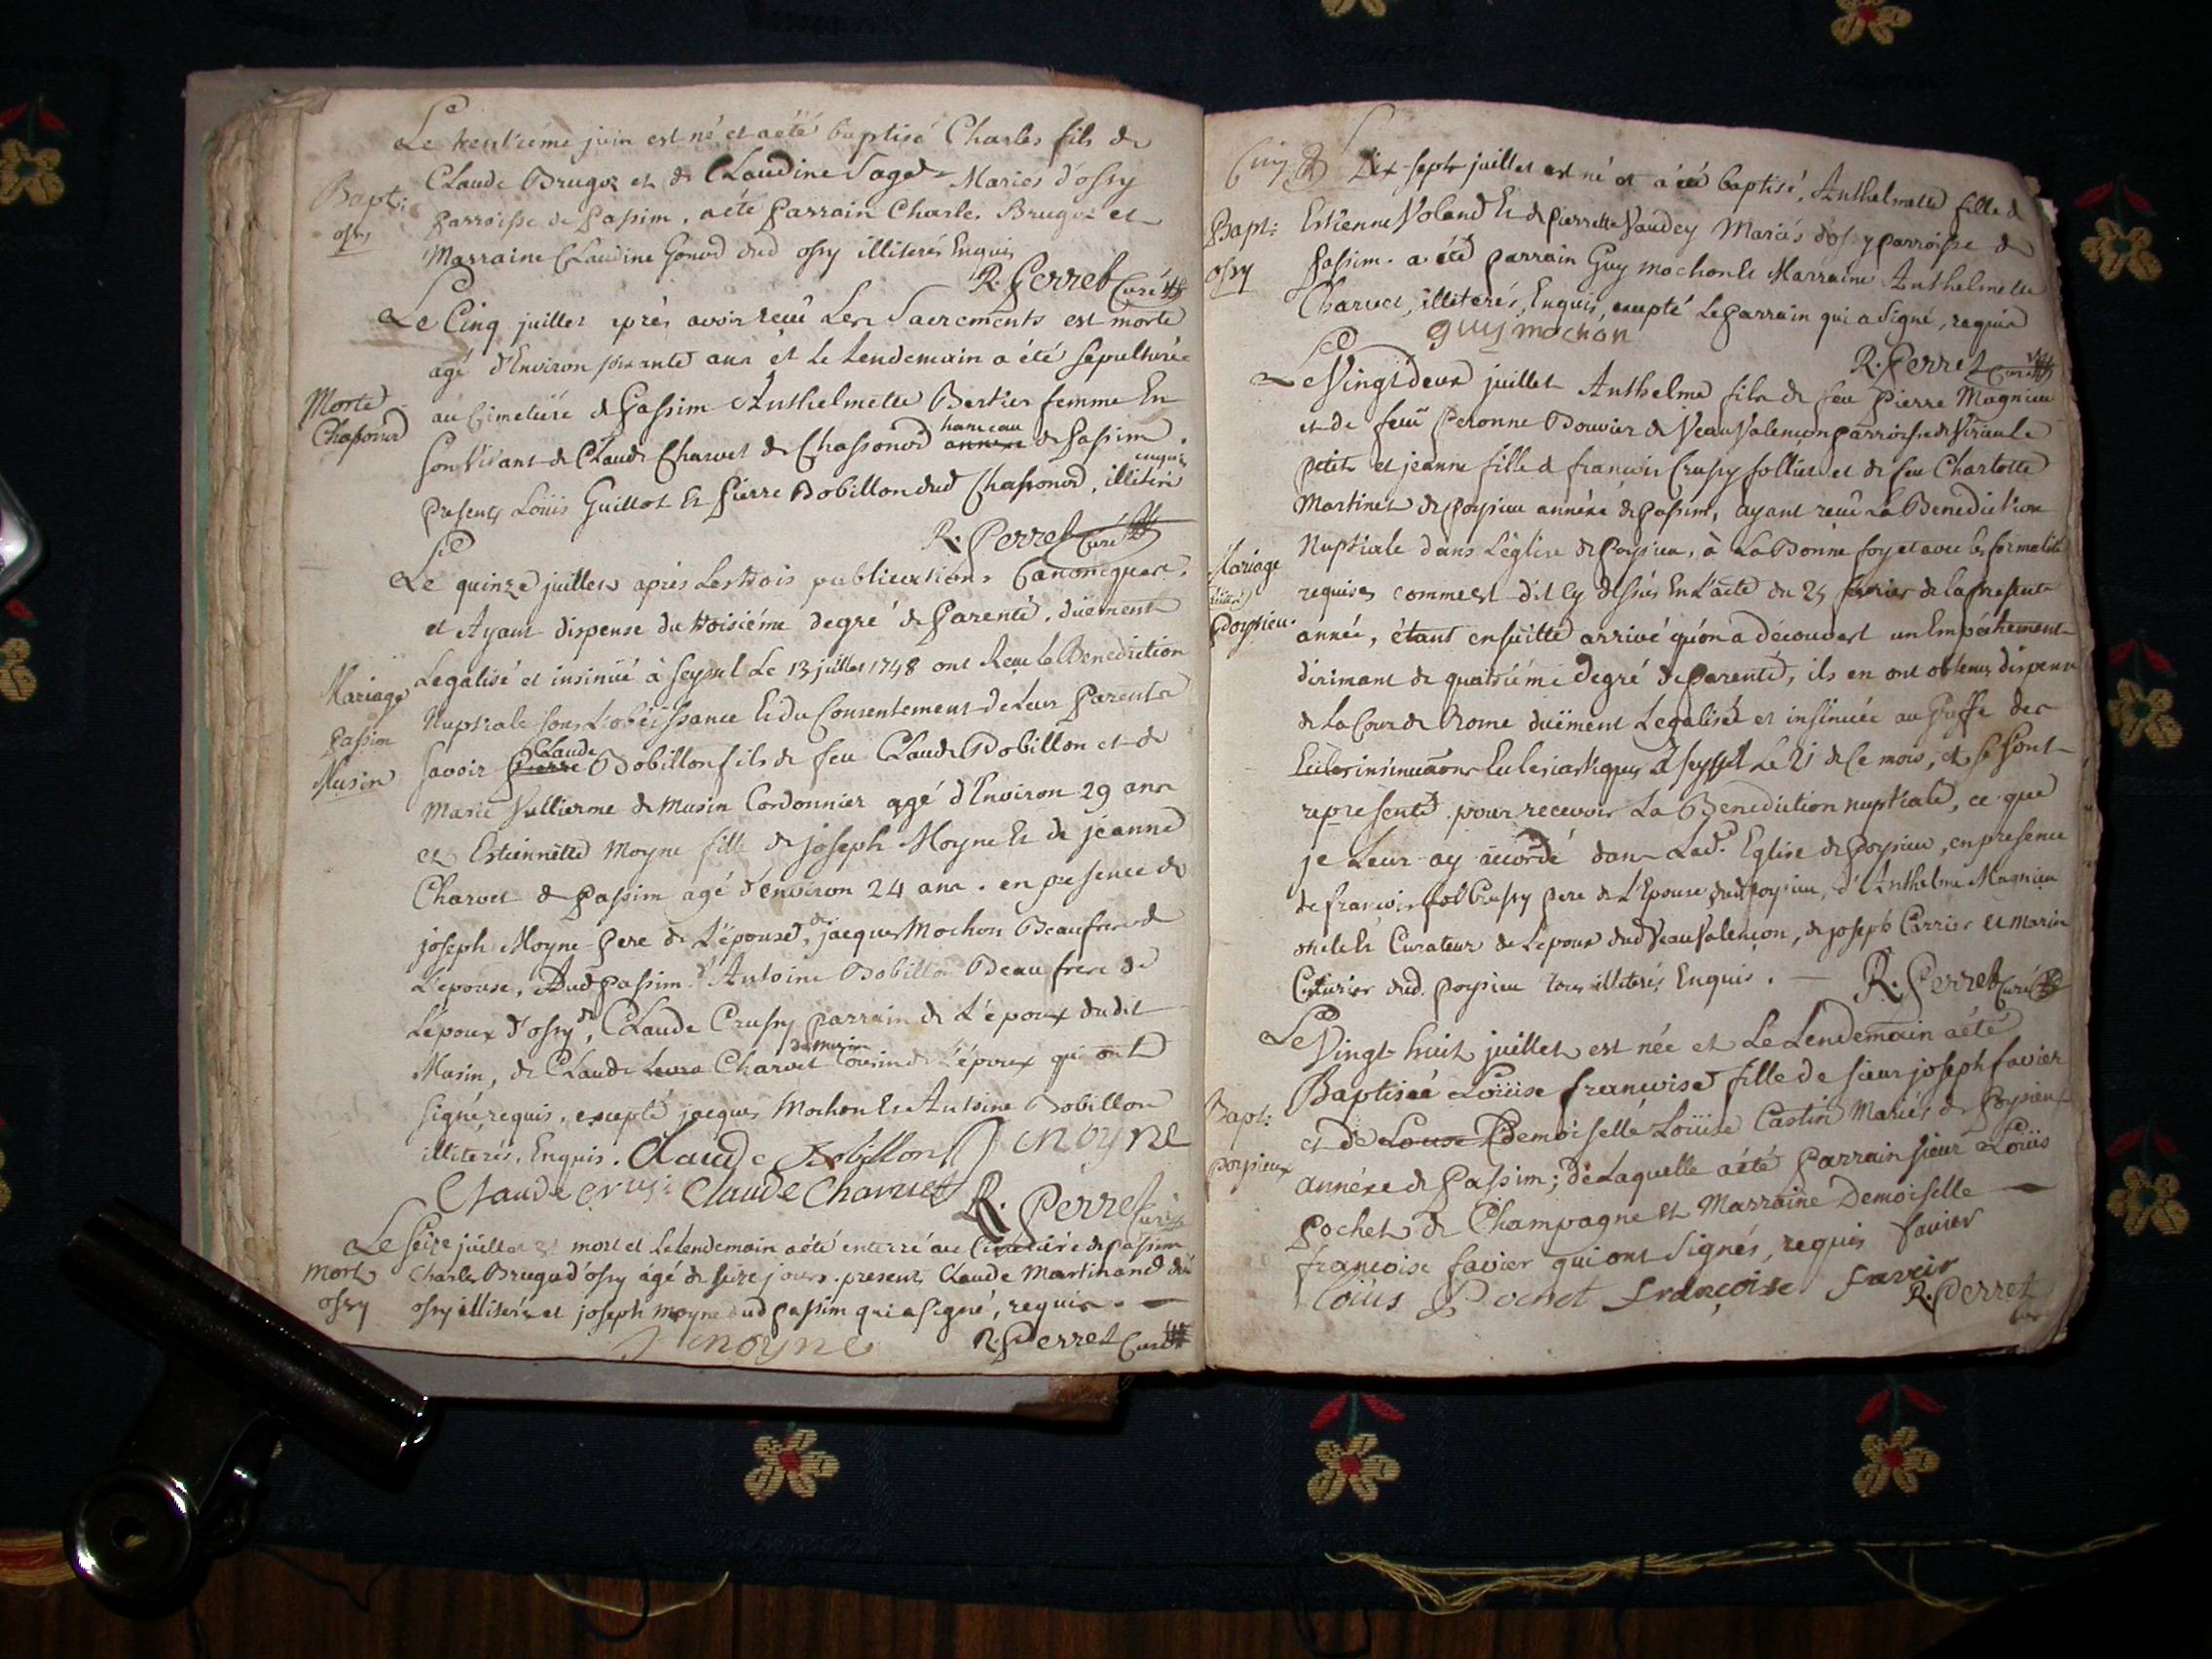 Le trentième juin est né et a été baptisé Charles fils de
Bapt:
ossy
Claude Brugoz et de Claudine Sage Mariés d'ossy
parroisse de passim, a été parrain Charles Brugoz et
Marraine Claudine Gonod dud ossy illiterés Enquis
R. Perret Curé
Le Cinq juillet après avoir reçû Les Sacrements est morte
agé d'Environ soixante ans et Le Lendemain a été sepulturée
Morte
Chassonod
au Cimetière de Passim Anthelmette Bertier femme En
son Vivant de Claude Charvet de Chassonod annexe hameau de Passim.
presents Loüis Guillot et pierre Bobillon dud Chassonod, illiteré enquis
R. Perret Curé
Le quinze juillet après Les trois publications Canoniques,
et Ayant dispense du troisième degré de Parenté, düement
Legalisé et insinüé à Seyssel Le 13 juillet 1748 ont Reçu la Benediction
Mariage
passim
Musin
Nuptiale sous L'obéissance et du Consentement de Leurs Parents
savoir Pierre Claude Bobillon fils de feu Claude Bobillon et de
Marie Vullierme de Musin Cordonnier agé d'Environ 29 ans
et Estiennette Moyne fille de joseph Moyne et de jeanne
Charvet de passim agé d'environ 24 ans. en presence de
joseph Moyne Pere de L'épouse, de jacques Mochon Beaufrere de
L'epouse, dud Passim. d'Antoine Bobillon Beau frere de
L'époux d'ossy, de Claude Crussy parrain de L'époux dudit
Musin, de Claude Charvet de musin Cousin de L'époux qui ont
signé requis, excepté jacques Mochon et Antoine Bobillon
illiterés, Enquis. Claude Bobillon J moyne
Claude crusi Claude Charvet R. Perret Curé
Le seize juillet est mort et Le lendemain a été enterré au Cimetière de passim
mort
ossy
Charles Brugoz d'ossy âgé de seize jours. presents Claude Martinand dud
ossy illiteré et joseph moyne dud passim qui a signé, requis.
J moyne R. Perret Curé
Le Dix-sept juillet est né et a été baptisé, Anthelmette fille d
Bapt:
ossy
Estienne Voland Et de pierrette Vaudey Mariés d'ossy parroisse de
passim. a été parrain Guy mochon et Marraine Anthelmette
Charvet, illiterés, Enquis, excepté Le parrain qui a signé, requis
guy mochon
R. Perret Curé
Le Vingt deux juillet Anthelme fils de feu Pierre Magnieu
et de feuë Peronne Bouvier de Veau Valençon parroisse de Virieu Le
petit et jeanne fille de francois Crussy et de feu Charlotte
Martinet de poysieu annéxe de passim, ayant reçu La Benediction
Mariage
poysieu.
Nuptiale dans L'église de Poysieu, à La Bonne foy et avec les formalités
requises comme est dit Cy dessus En L'acte du 25 fevrier de la presente
année, étant ensuitte arrivé qu'on a découvert un Empêchement
dirimant de quatriéme degré de Parenté, ils en ont obtenu dispense
de La Cour de Rome duëment Legalisée et insinuée au Greffe des
insinuaons Eclesiastiques de Seyssel Le 21 de Ce mois, et se sont
representé pour recevoir La Benediction nuptiale, ce que
je Leur ay accordé dans Lad. Eglise de Poysieu, en presence
de francois Crussy pere de L'Epouse dud Poysieu, d'Anthelme Magnieu
oncle et Curateur de L'epoux dud Veau Valençon, de joseph Carrier et Marin
Couturier dud. poysieu tous illiterés Enquis. R. Perret Curé
Le Vingt huit juillet est née et Le Lendemain a été
Bapt:
poysieux
Baptiseé Loüise françoise fille de sieur joseph favier
et de Louise Demoiselle Loüise Castin Mariés de Poysieux
annéxe de Passim; de Laquelle a été Parrain sieur Loüis
pochet de Champagne et Marraine Demoiselle
françoise favier qui ont signés, requis favier
loüis Pochet françoise favier
R. Perret